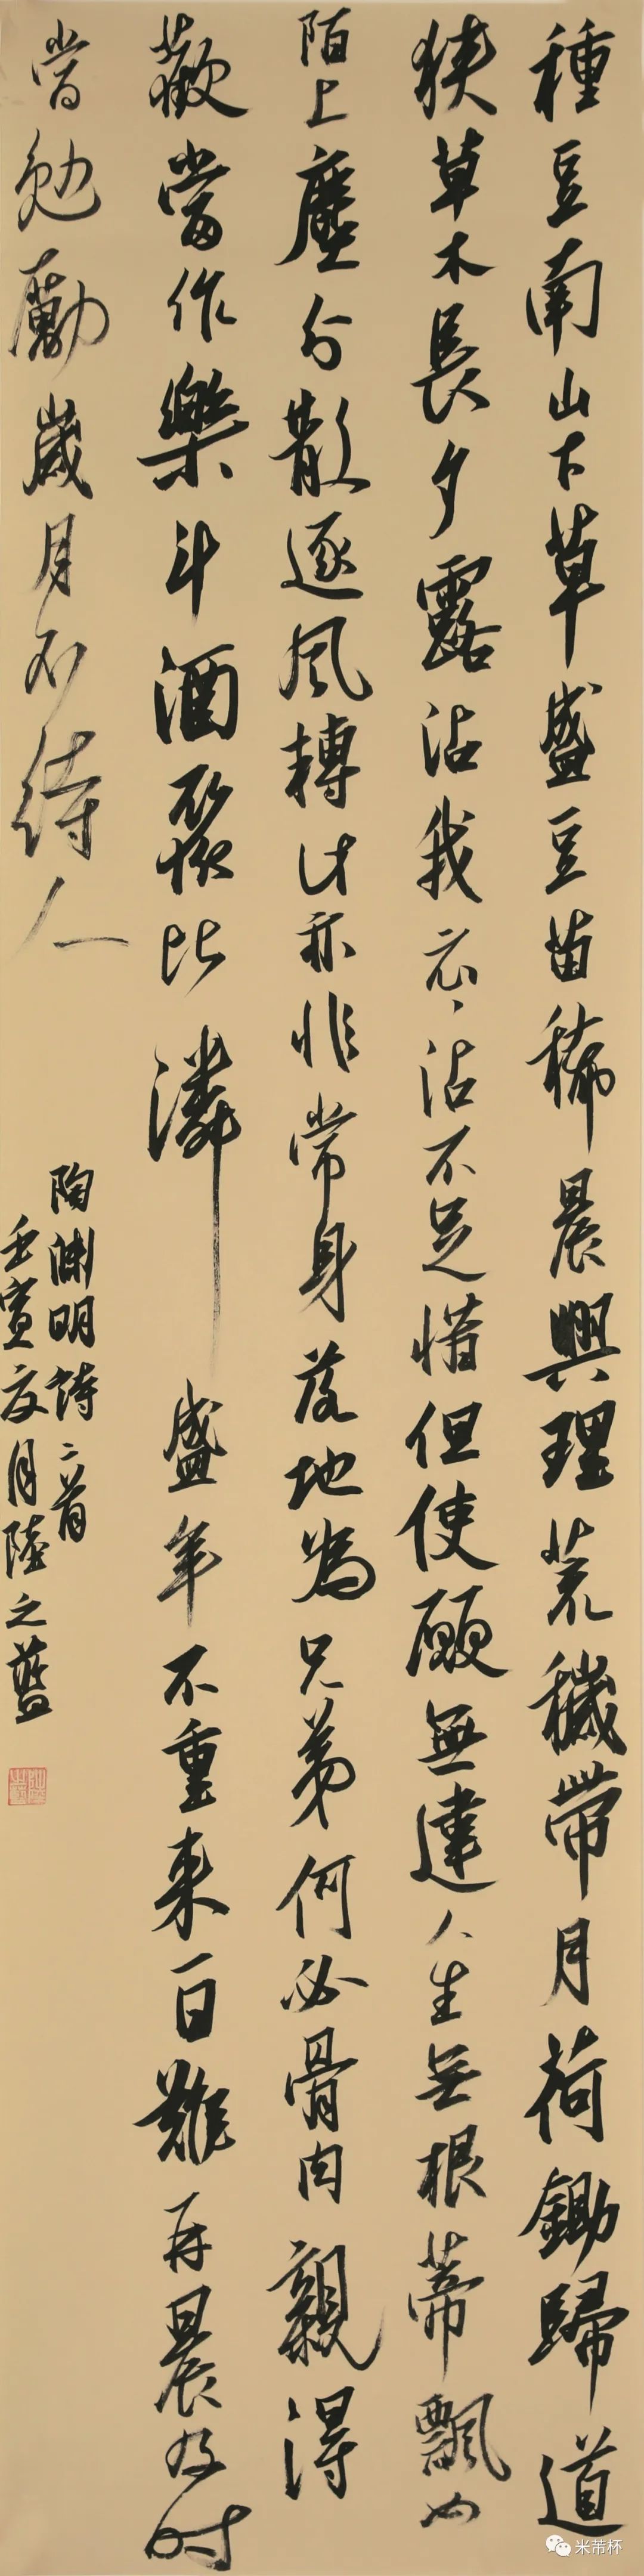 種豆南山下草盛豆苗稀晨興理荒穢帶月荷鋤歸道
狹草木長夕露沾我衣衣沾不足惜但使願無違人生無根蒂飄如
陌上塵分散逐風轉此亦非常身落地為兄弟何必骨肉親得
歡當作樂斗酒聚比潾盛年不重來一日難再晨及時
當勉勵歲月不待人
陶淵明詩二首
壬寅夏月陸之藍
米芾杯